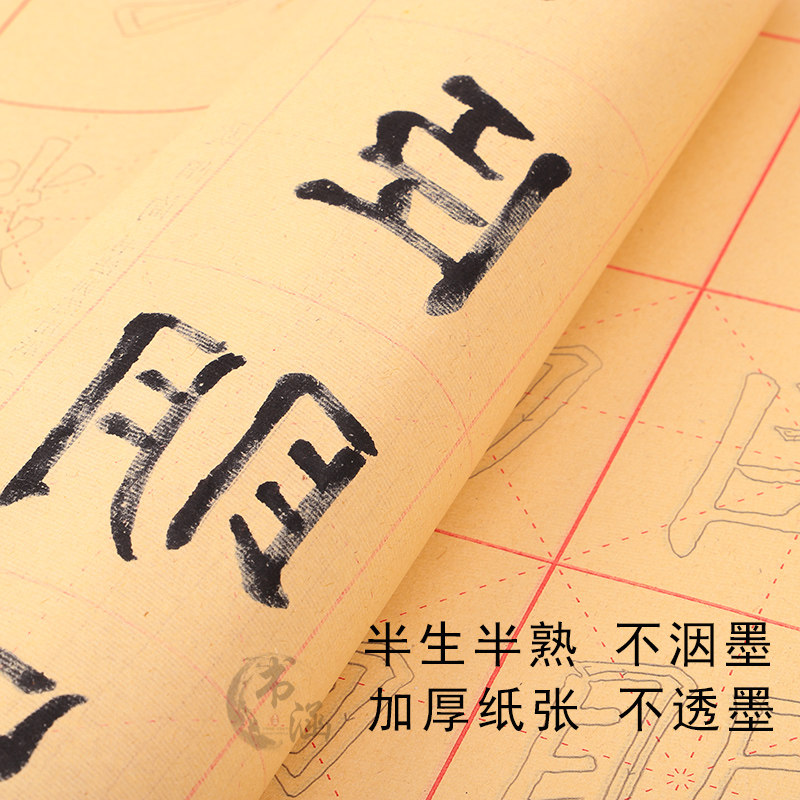 朋
半生半熟 不洇墨
加厚纸张 不透墨
书涵